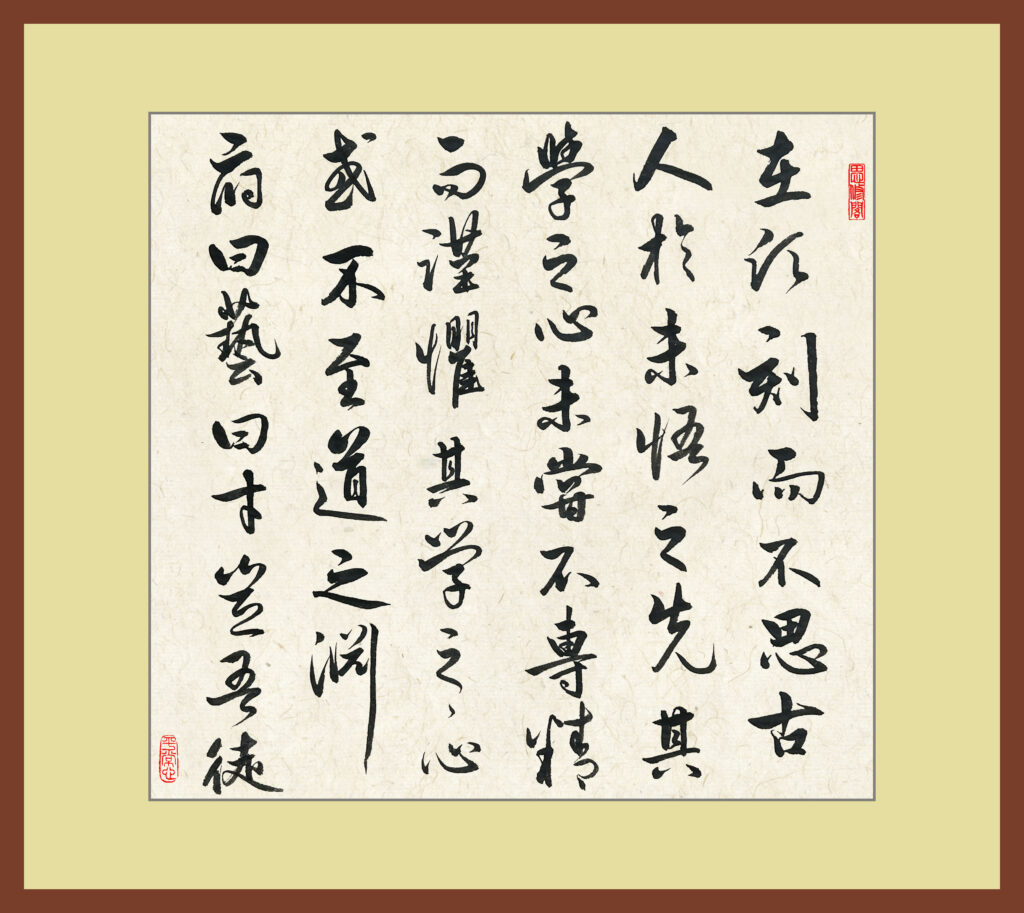 思修閣
在頃刻而不思古
人於未悟之先其
學之心未嘗不專精
而謹懼其学之心
或不至道之淵
府曰藝曰才豈吾徒
平常心